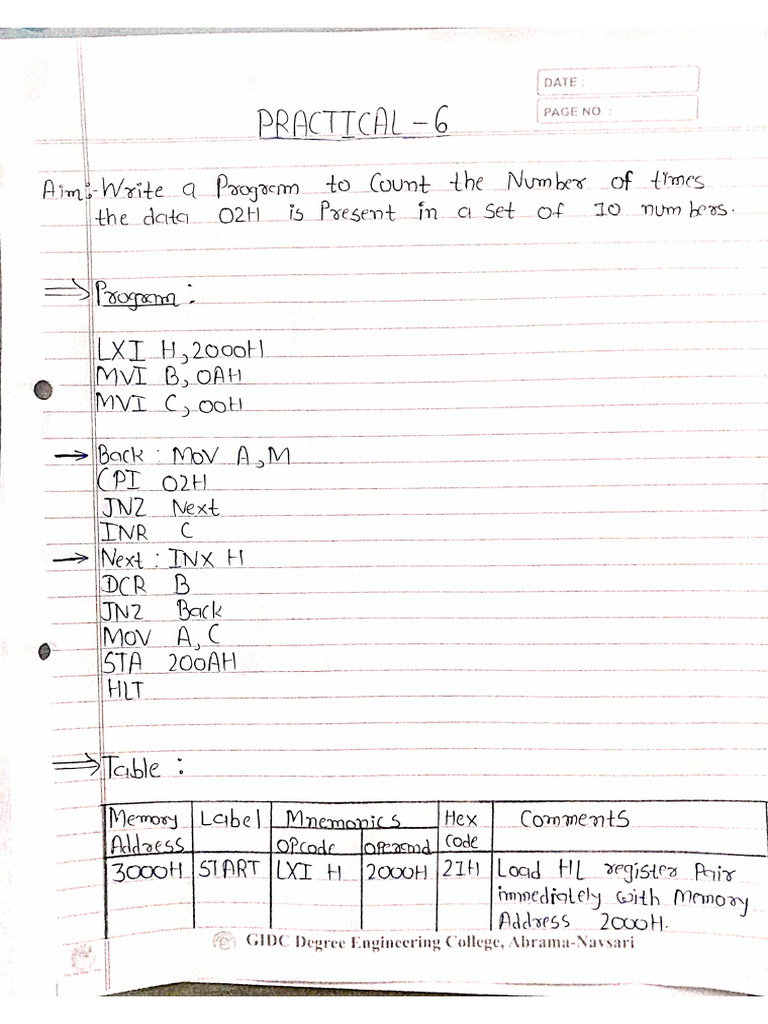 DATE :
PAGE NO. :
PRACTICAL - 6
Aim:- Write a Program to Count the Number of times
the data 02H is Present in a set of 10 numbers.
⇒ Program :
LXI H, 2000H
MVI B, 0AH
MVI C, 00H
→ Back : MOV A, M
CPI 02H
JNZ Next
INR C
→ Next : INX H
DCR B
JNZ Back
MOV A, C
STA 200AH
HLT
⇒ Table :
Memory Label Mnemonics Hex Comments
Address Opcode operand code
3000H START LXI H 2000H 21H Load HL register Pair
immediately with Memory
Address 2000H.
GIDC Degree Engineering College, Abrama-Navsari